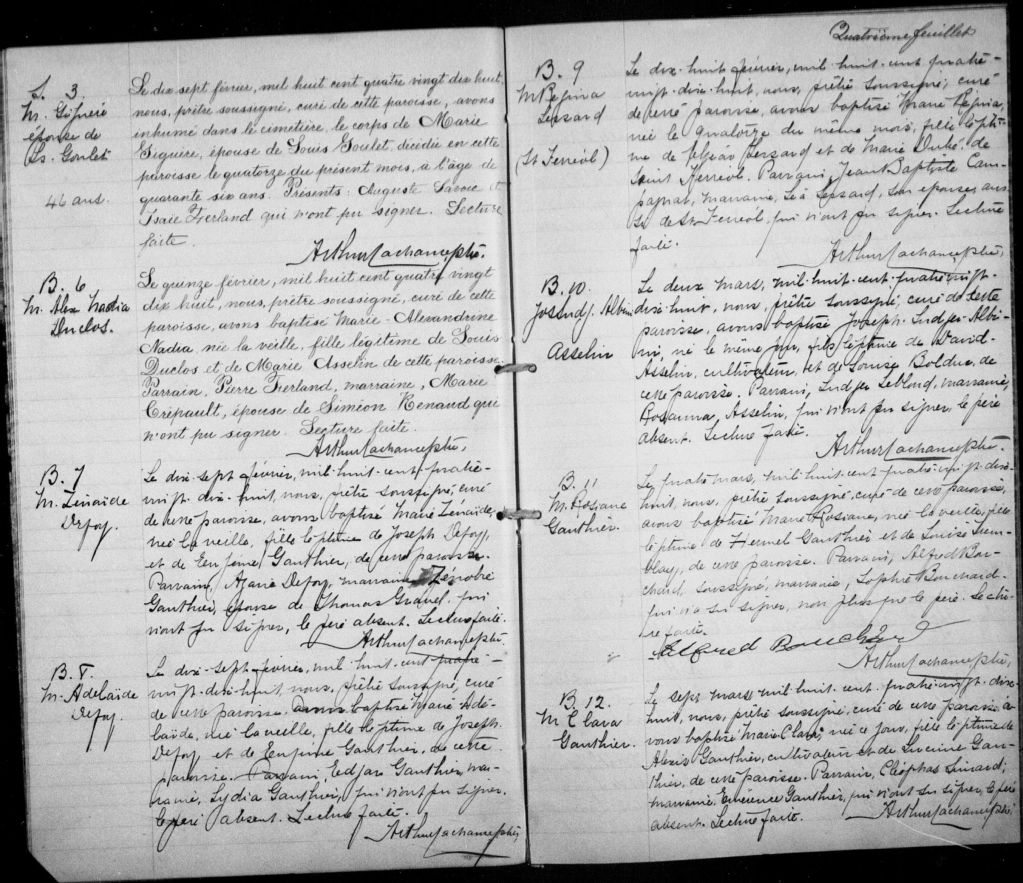 S. 3.
M. Giguère
épouse de
Ls. Goulet
46 ans.
Le dix sept février, mil huit cent quatre vingt dix huit,
nous, prêtre soussigné, curé de cette paroisse, avons
inhumé dans le cimetière, le corps de Marie
Giguère, épouse de Louis Goulet, décédée en cette
paroisse le quatorze du présent mois, à l'âge de
quarante six ans. Présents: Auguste Lavoie et
Isaïe Ferland qui n'ont pu signer. Lecture
faite.
Arthur Lachance ptre.
B. 6
M. Alex Nadia
Duclos.
Le quinze février, mil huit cent quatre vingt
dix huit, nous, prêtre soussigné, curé de cette
paroisse, avons baptisé Marie-Alexandrine
Nadia, née la veille, fille légitime de Louis
Duclos et de Marie Asselin de cette paroisse.
Parrain, Pierre Ferland, marraine, Marie
Crépault, épouse de Siméon Renaud qui
n'ont pu signer. Lecture faite.
Arthur Lachance ptre.
B. 7
M. Zénaïde
Defoy.
Le dix-sept février, mil-huit-cent-quatre-
vingt-dix-huit, nous, prêtre soussigné, curé
de cette paroisse, avons baptisé Marie Zénaïde,
née la veille, fille légitime de Joseph Defoy,
et de Eugénie Gauthier, de cette paroisse.
Parrain, Defoy, marraine Zénobie
Gauthier, épouse de Thomas Gravel, qui
n'ont pu signer, le père absent. Lecture faite.
Arthur Lachance ptre.
B. 8.
M. Adelaïde
Defoy.
Le dix-sept février, mil-huit-cent quatre-
vingt-dix-huit, nous, prêtre soussigné, curé
de cette paroisse avons baptisé Marie Adé-
laïde, née la veille, fille légitime de Joseph
Defoy et de Eugénie Gauthier, de cette
paroisse. Parrain, Edjar Gauthier, mar-
raine, Lydia Gauthier, qui n'ont pu signer.
le père absent. Lecture faite.
Arthur Lachance ptre.
Quatrième feuillet
B. 9
M Régina
Lessard
(St Ferréol)
Le dix-huit février, mil huit-cent quatre-
vingt-dix-huit, nous, prêtre soussigné, curé
de cette paroisse, avons baptisé Marie Régina,
née le quatorze du même mois, fille légiti-
me de Elzéar Lessard et de Marie Dubé, de
Saint Ferréol. Parrain, Jean Baptiste
marraine, Léa Lessard, son épouse, aus-
si de St Ferréol, qui n'ont pu signer. Lecture
faite.
Arthur Lachance ptre.
B. 10.
Jos Ludj. Albini
Asselin
Le deux mars, mil-huit-cent-quatre-vingt-
dix-huit, nous, prêtre soussigné, curé de cette
paroisse, avons baptisé Joseph-Ludjer-Albi-
ni, né le même jour, fils légitime de David
Asselin, cultivateur, et de Louise Bolduc, de
cette paroisse. Parrain, Ludjer Leblond, marraine,
Rosanna Asselin, qui n'ont pu signer, le père
absent. Lecture faite.
Arthur Lachance ptre.
B. 11
M. Rosiane
Gauthier.
Le quatre mars, mil-huit-cent-quatre-vingt-dix-
huit, nous, prêtre soussigné, curé de cette paroisse,
avons baptisé Marie Rosiane, née la veille, fille
légitime de Gauthier et de Louise Trem-
blay, de cette paroisse. Parrain, Alfred Bou-
chard, soussigné, marraine, Sophie Bouchard,
qui n'a su signer, non plus que le père. Lectu-
re faite.
Alfred Bouchard
Arthur Lachance ptre.
B. 12.
M Clara
Gauthier.
Le sept mars mil-huit-cent-quatre-vingt-dix-
huit, nous, prêtre soussigné, curé de cette paroisse, a-
vons baptisé Marie Clara, née ce jour, fille légitime de
Alexis Gauthier, cultivateur et de Gau-
thier, de cette paroisse. Parrain, Cléophas Simard,
marraine, Émérence Gauthier, qui n'ont su signer, le père
absent. Lecture faite.
Arthur Lachance ptre.